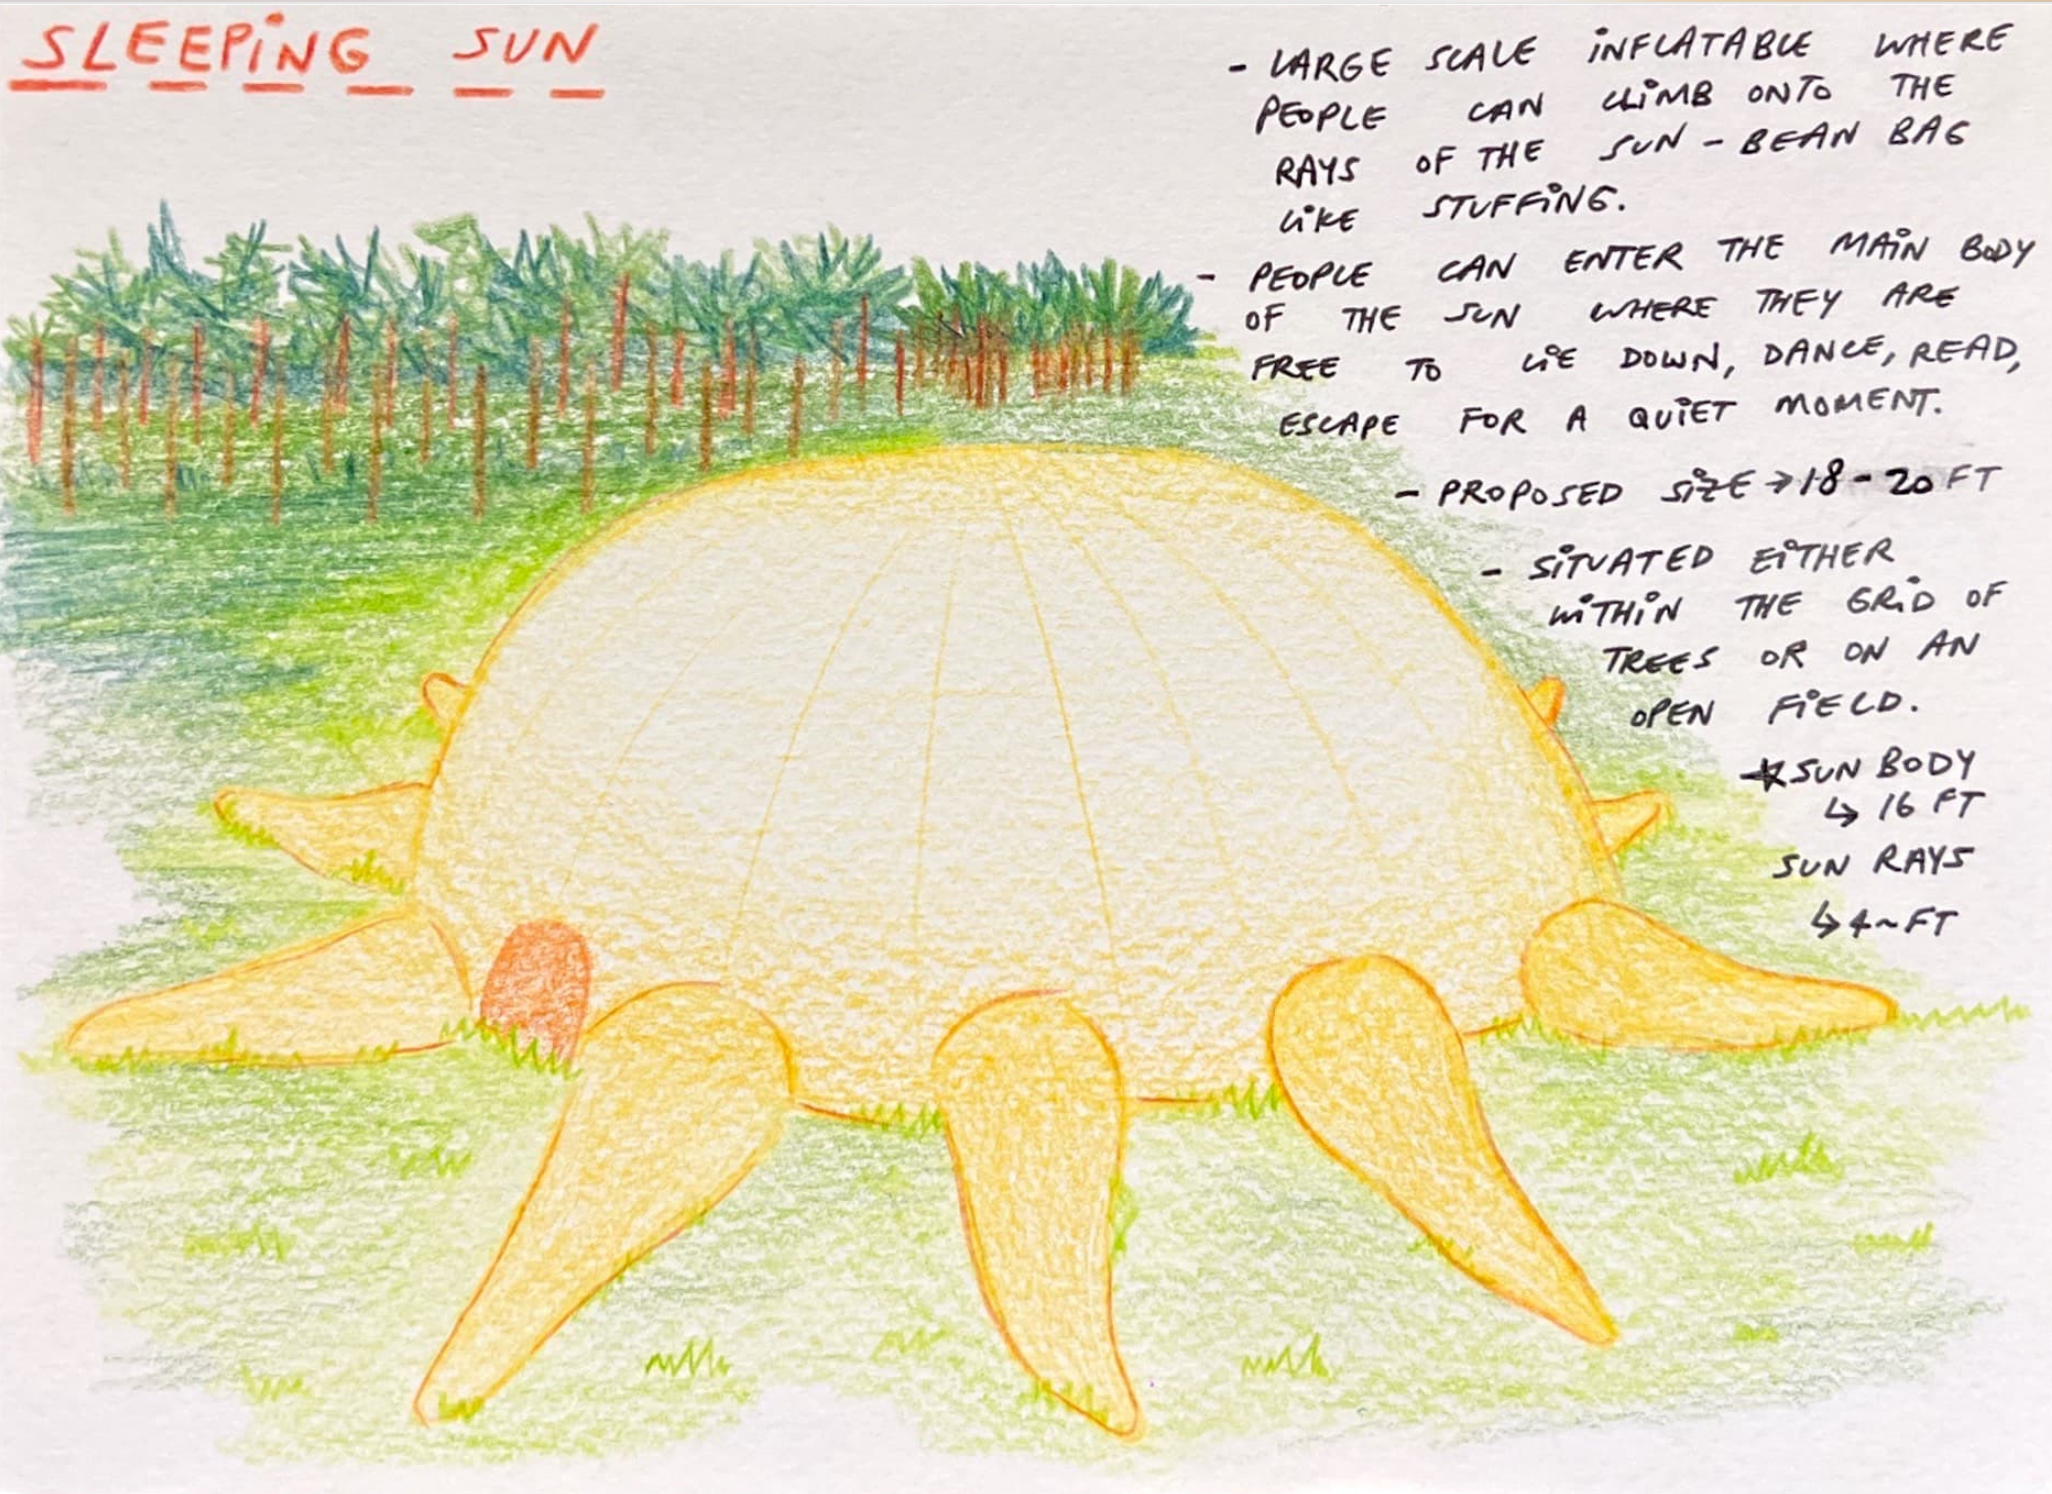 SLEEPING SUN
- LARGE SCALE INFLATABLE WHERE
PEOPLE CAN CLIMB ONTO THE
RAYS OF THE SUN - BEAN BAG
LIKE STUFFING.
- PEOPLE CAN ENTER THE MAIN BODY
OF THE SUN WHERE THEY ARE
FREE TO LIE DOWN, DANCE, READ,
ESCAPE FOR A QUIET MOMENT.
- PROPOSED SIZE → 18 - 20 FT
- SITUATED EITHER
WITHIN THE GRID OF
TREES OR ON AN
OPEN FIELD.
★ SUN BODY
↳ 16 FT
SUN RAYS
↳ 4~ FT